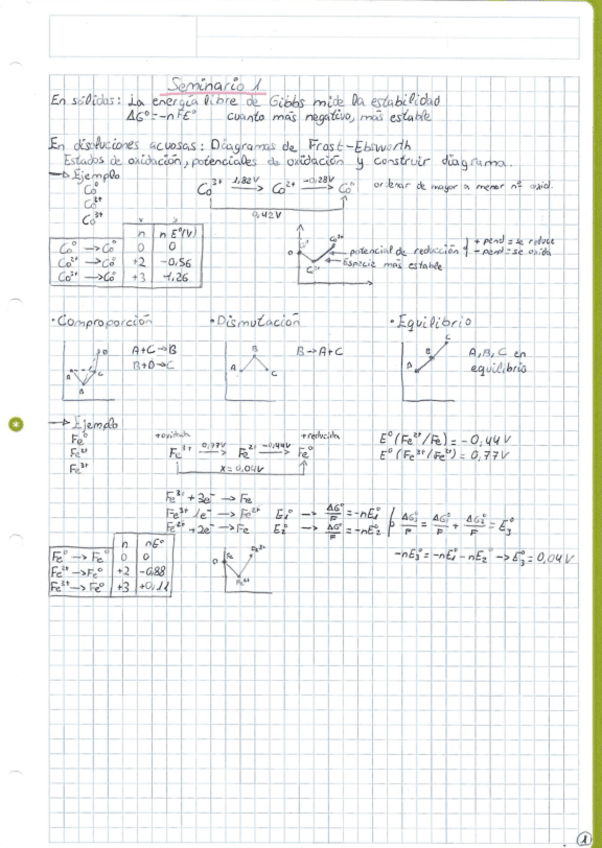 Seminario 1
En sólidos: La energía libre de Gibbs mide la estabilidad
ΔG°=-nFE° cuanto más negativo, más estable
En disoluciones acuosas: Diagramas de Frost-Ebsworth
Estados de oxidación, potenciales de oxidación y construir diagrama.
→ Ejemplo
Co°
Co²⁺
Co³⁺
Co³⁺ 1,82V → Co²⁺ -0,28V → Co° ordenar de mayor a menor nº oxid.
0,42V
n n E°(V)
Co° → Co° 0 0
Co²⁺ → Co° +2 -0,56
Co³⁺ → Co° +3 -1,26
potencial de reducción + pend = se reduce
- pend = se oxida
Especie más estable
· Comproporción · Dismutación · Equilibrio
A+C→B B→A+C A, B, C en
B+D→C equilibrio
→ Ejemplo
Fe°
Fe²⁺
Fe³⁺
+oxidada +reducida
Fe³⁺ 0,77V → Fe²⁺ -0,44V → Fe°
x=0,04V
E°(Fe²⁺/Fe) = -0,44V
E°(Fe³⁺/Fe²⁺) = 0,77V
Fe³⁺ + 3e⁻ → Fe
Fe³⁺ 1e⁻ → Fe²⁺ E₁° → ΔG°/F = -nE₁°
Fe²⁺ + 2e⁻ → Fe E₂° → ΔG°/F = -nE₂°
ΔG₃°/F = ΔG₁°/F + ΔG₂°/F = E₃°
-nE₃° = -nE₁° - nE₂° → E₃° = 0,04V
n nE°
Fe° → Fe° 0 0
Fe²⁺ → Fe° +2 -0,88
Fe³⁺ → Fe° +3 +0,11
1